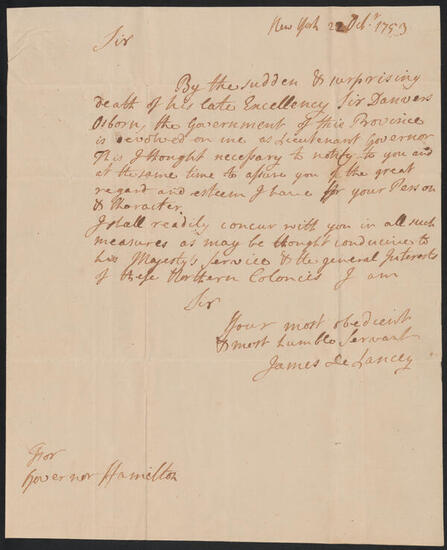 New York 22 Octr. 1753
Sir
By the sudden & surprising
death of his late Excellency Sir Danvers
Osborn, the Government of this Province
is devolved on me as Lieutenant Governor
This I thought necessary to notify to you and
at the same time to assure you of the great
regard and esteem I have for your Person
& Character.
I shall readily concur with you in all such
measures as may be thought conducive to
his Majesty's Service & the general Interests
of these Northern Colonies I am
Sir
Your most obedient
& most humble Servant
James De Lancey
For
Governor Hamilton